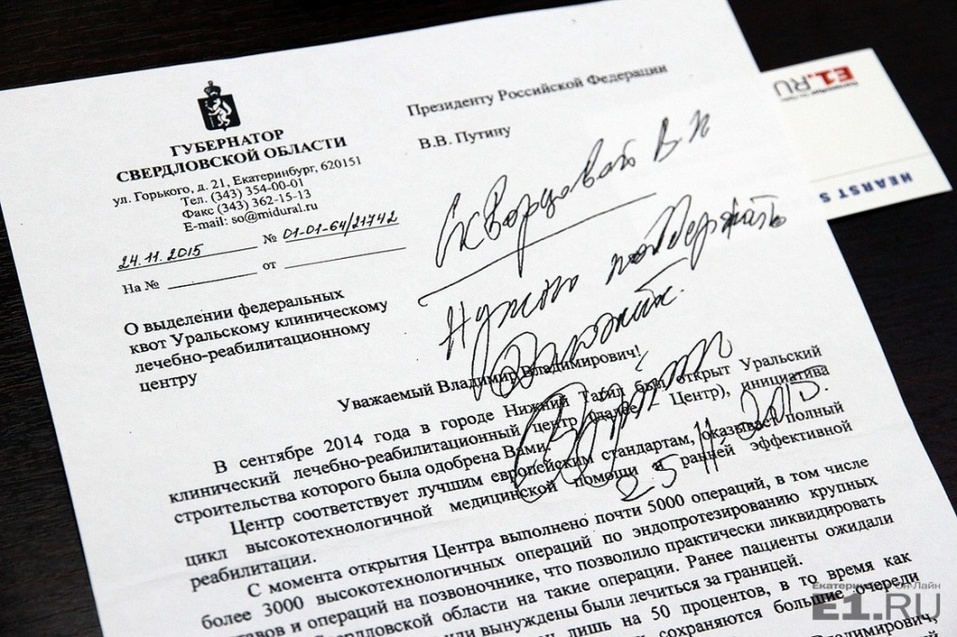 ГУБЕРНАТОР
СВЕРДЛОВСКОЙ ОБЛАСТИ
ул. Горького, д. 21, Екатеринбург, 620151
Тел. (343) 354-00-01
Факс (343) 362-15-13
E-mail: so@midural.ru
24.11.2015 № 01-01-64/21742
На № от
О выделении федеральных
квот Уральскому клиническому
лечебно-реабилитационному
центру
Президенту Российской Федерации
В.В. Путину
Скворцовой В И
Нужно поддержать
25 11 2015.
Уважаемый Владимир Владимирович!
В сентябре 2014 года в городе Нижний Тагил был открыт Уральский
клинический лечебно-реабилитационный центр (далее – Центр), инициатива
строительства которого была одобрена Вами.
Центр соответствует лучшим европейским стандартам, оказывает полный
цикл высокотехнологичной медицинской помощи и ранней эффективной
реабилитации.
С момента открытия Центра выполнено почти 5000 операций, в том числе
более 3000 высокотехнологичных операций по эндопротезированию крупных
и операций на позвоночнике, что позволило практически ликвидировать
области на такие операции. Ранее пациенты ожидали
или вынуждены были лечиться за границей.
лишь на 50 процентов, в то время как
сохраняются большие очереди
E1.RU
HEARST S
Екатеринбург Он Лайн
E1.RU